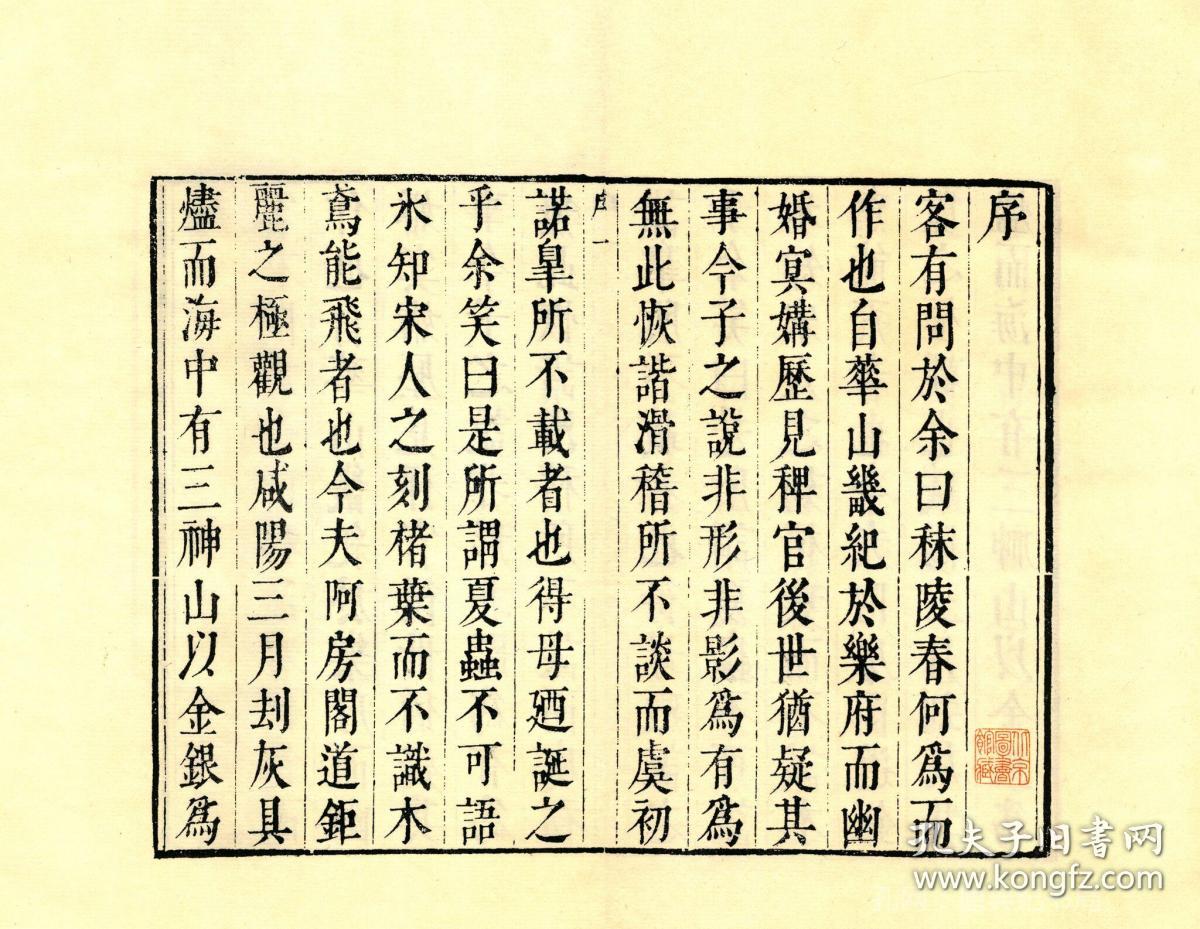 序
客有問於余曰秣陵春何爲而
作也自華山畿紀於樂府而幽
婚冥媾歷見稗官後世猶疑其
事今子之說非形非影爲有爲
無此恢諧滑稽所不談而虞初
序 一
諾臯所不載者也得毋迺誕之
乎余笑曰是所謂夏蟲不可語
氷知宋人之刻楮葉而不識木
鳶能飛者也今夫阿房閣道鉅
麗之極觀也咸陽三月刼灰具
燼而海中有三神山以金銀爲
北京圖書館藏
孔夫子旧书网
www.kongfz.com